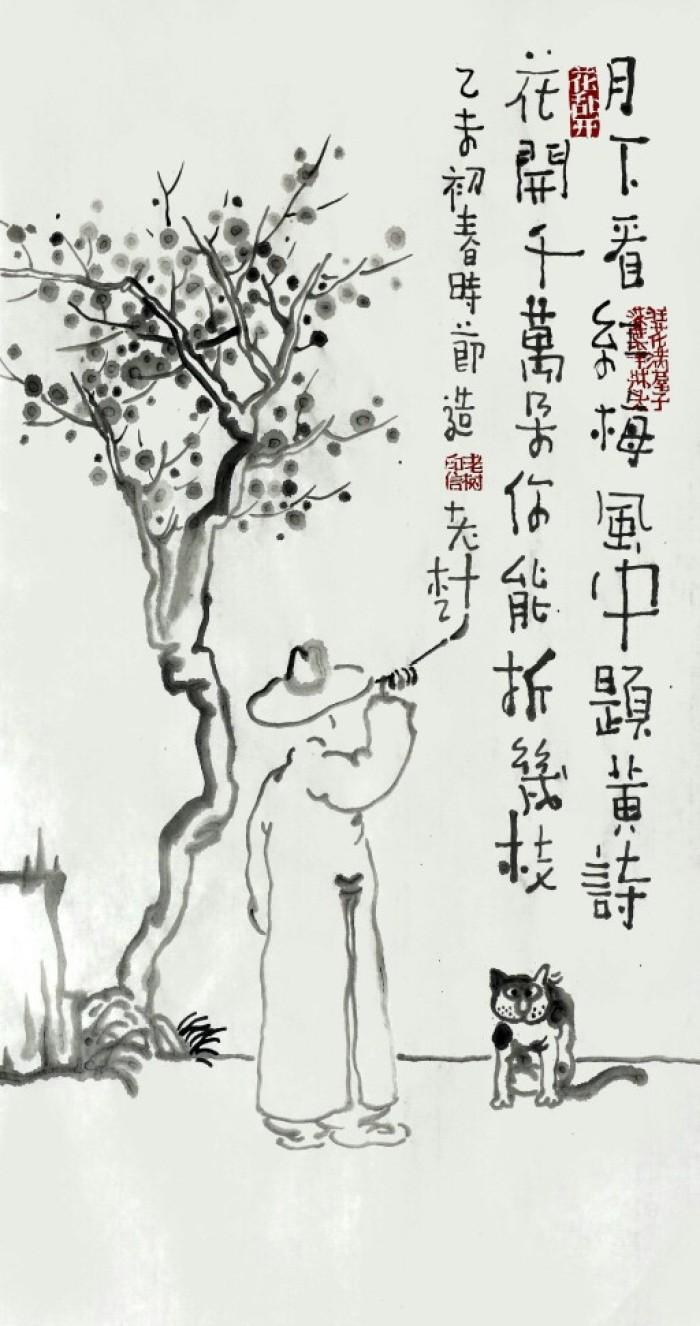 月下看紅梅風中題黃詩
花乱开
花開千萬朵你能折幾枝
乙未初春時節造
老树
老树